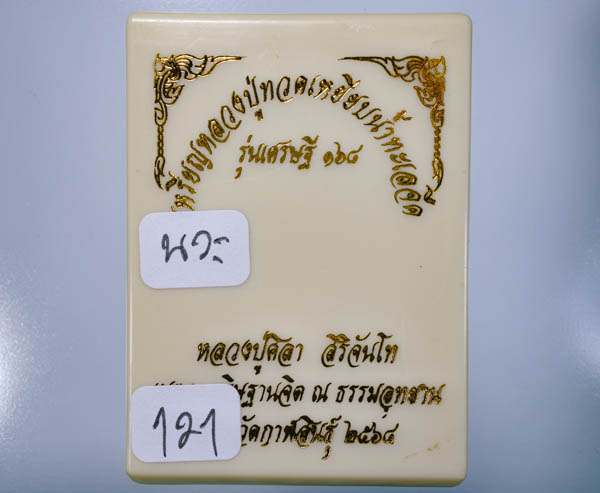 เหรียญหลวงปู่ทวดเหยียบน้ำทะเลจืด
รุ่นเศรษฐี ๑๖๘
นวะ
หลวงปู่ศิลา สิริจันโท
ษฐานจิต ณ ธรรมอุทยาน
121
วัดกาฬสินธุ์ ๒๕๖๔